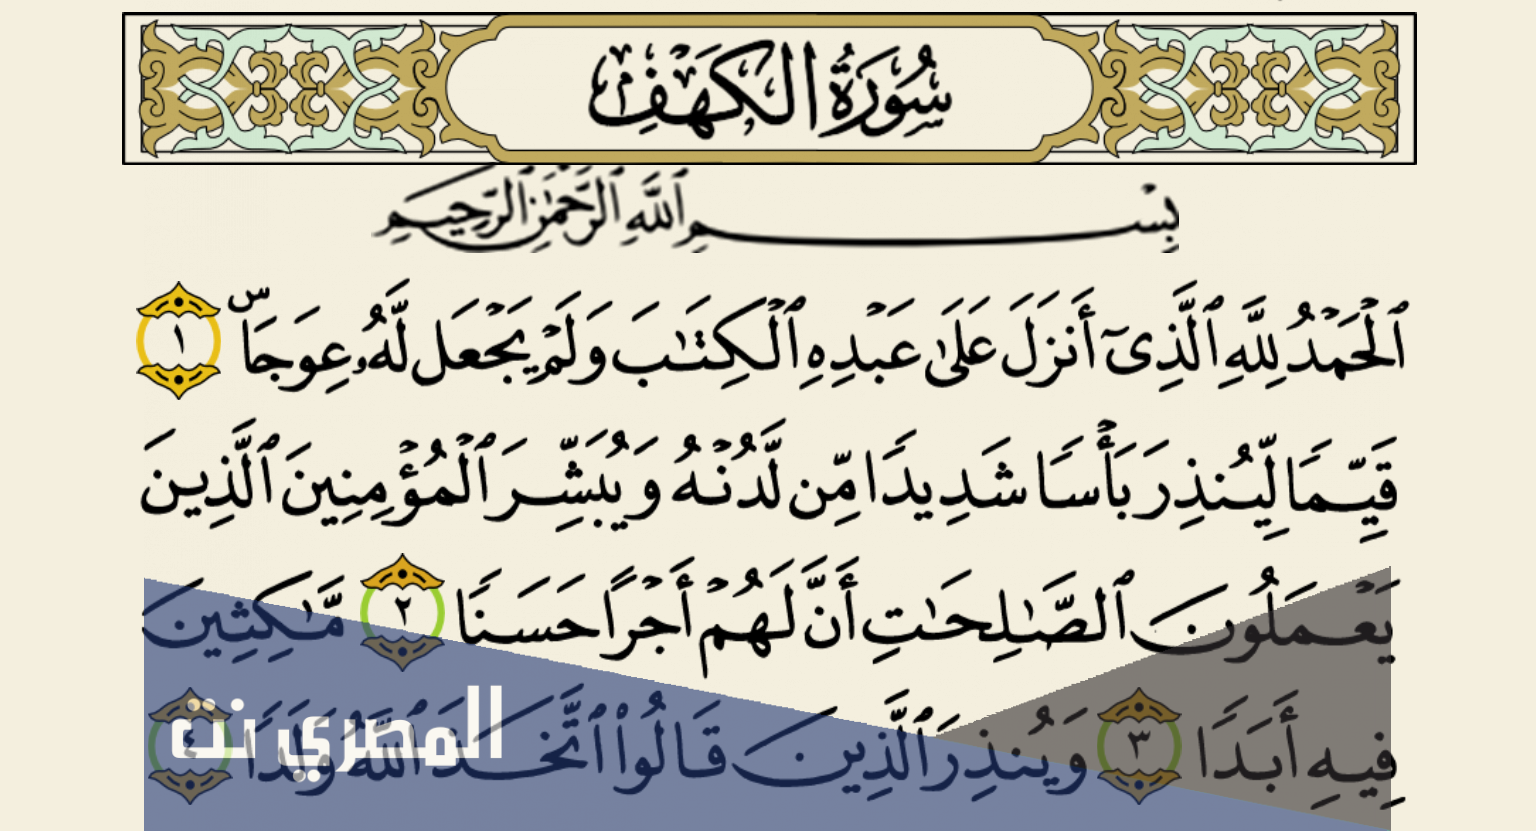 سُورَةُ الكَهْفِ
بِسْمِ ٱللَّهِ ٱلرَّحْمَٰنِ ٱلرَّحِيمِ
ٱلْحَمْدُ لِلَّهِ ٱلَّذِىٓ أَنزَلَ عَلَىٰ عَبْدِهِ ٱلْكِتَٰبَ وَلَمْ يَجْعَل لَّهُۥ عِوَجَاۜ ١
قَيِّمًا لِّيُنذِرَ بَأْسًا شَدِيدًا مِّن لَّدُنْهُ وَيُبَشِّرَ ٱلْمُؤْمِنِينَ ٱلَّذِينَ
يَعْمَلُونَ ٱلصَّٰلِحَٰتِ أَنَّ لَهُمْ أَجْرًا حَسَنًا ٢ مَّٰكِثِينَ
فِيهِ أَبَدًا ٣ وَيُنذِرَ ٱلَّذِينَ قَالُوا۟ ٱتَّخَذَ ٱللَّهُ وَلَدًا ٤
المصري نت